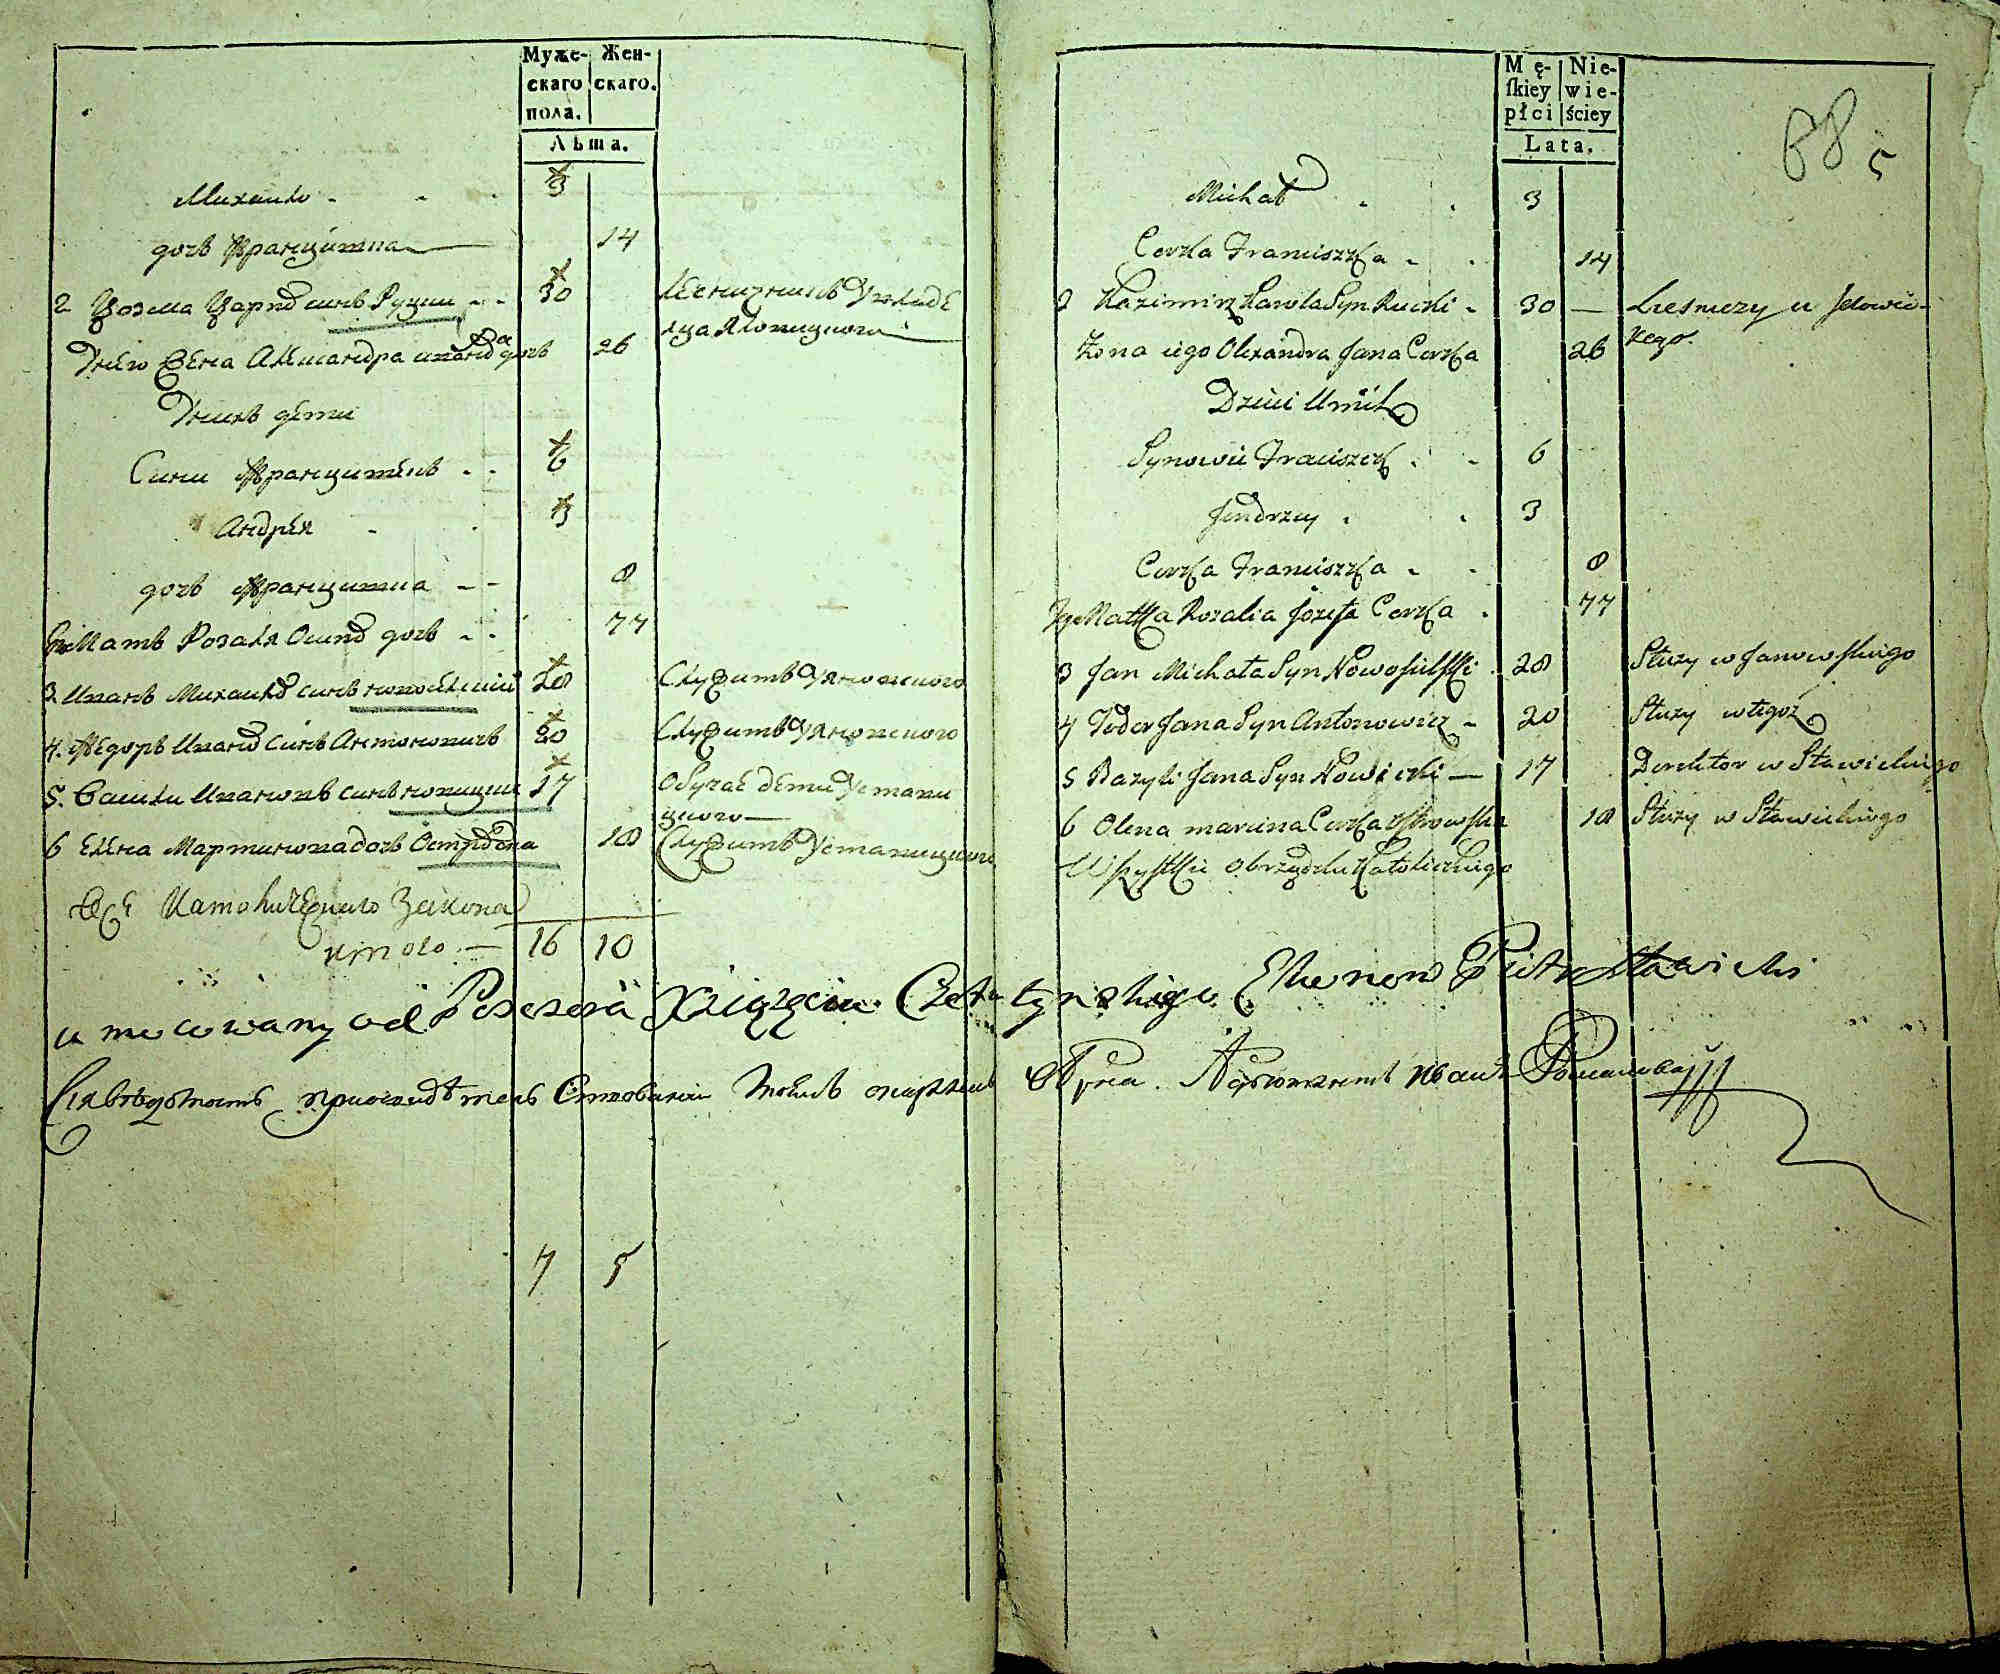 Муже-
скаго
пола.
Жен-
скаго.
Лѣта.
Михайло 3
дочь Францишка 14
2 Козма Карлов синъ Руцки 30 Лесничимъ у владе
лца Яловицкого
У него жена Александра Иванова дочь 26
У нихъ дети
Сини Францишекъ 6
Андрей 3
дочь Францишка 8
Его мать Розаля Осипова дочь 77
3 Иванъ Михайлов синъ Новосѣлский 28 Служить у Яновского
4. Федоръ Иванов синъ Антоновичъ 20 Служить у Яновского
5. Василь Ивановъ синъ Новицки 17 Обучае дети у Стави
цкого
6 Елена Мартинова дочь Островска 18 Служить у Ставицкого
Все Католического Закона
итого 16 10
7 5
Mę-
ſkiey
płci
Nie-
wie-
ściey
Lata.
68
5
Michał 3
Corka Franciszka 14
2 Kazimirz Karola Syn Rucki 30 — Lesniczy u Jełowic-
kego
Zona iego Olexandra Jana Corka 26
Dzieci u nich
Synowie Franciszek 6
Jendrzey 3
Corka Franciszka 8
Jego Matka Rozalia Jozefa Corka 77
3 Jan Michała Syn Nowosielski 28 Służy w Janowskiego
4 Fedor Jana Syn Antonowicz 20 Służy w tegoż
5 Bazyli Jana Syn Nowicki — 17 Derektor w Stawickiego
6 Olena Marcina Corka Ostrowska 18 Służy w Stawickiego
Wszystkie obrządku Katolickiego
umocowany od Posesora Xiązęcia Czetwertynskiego Ekonom Piotr Stawicki